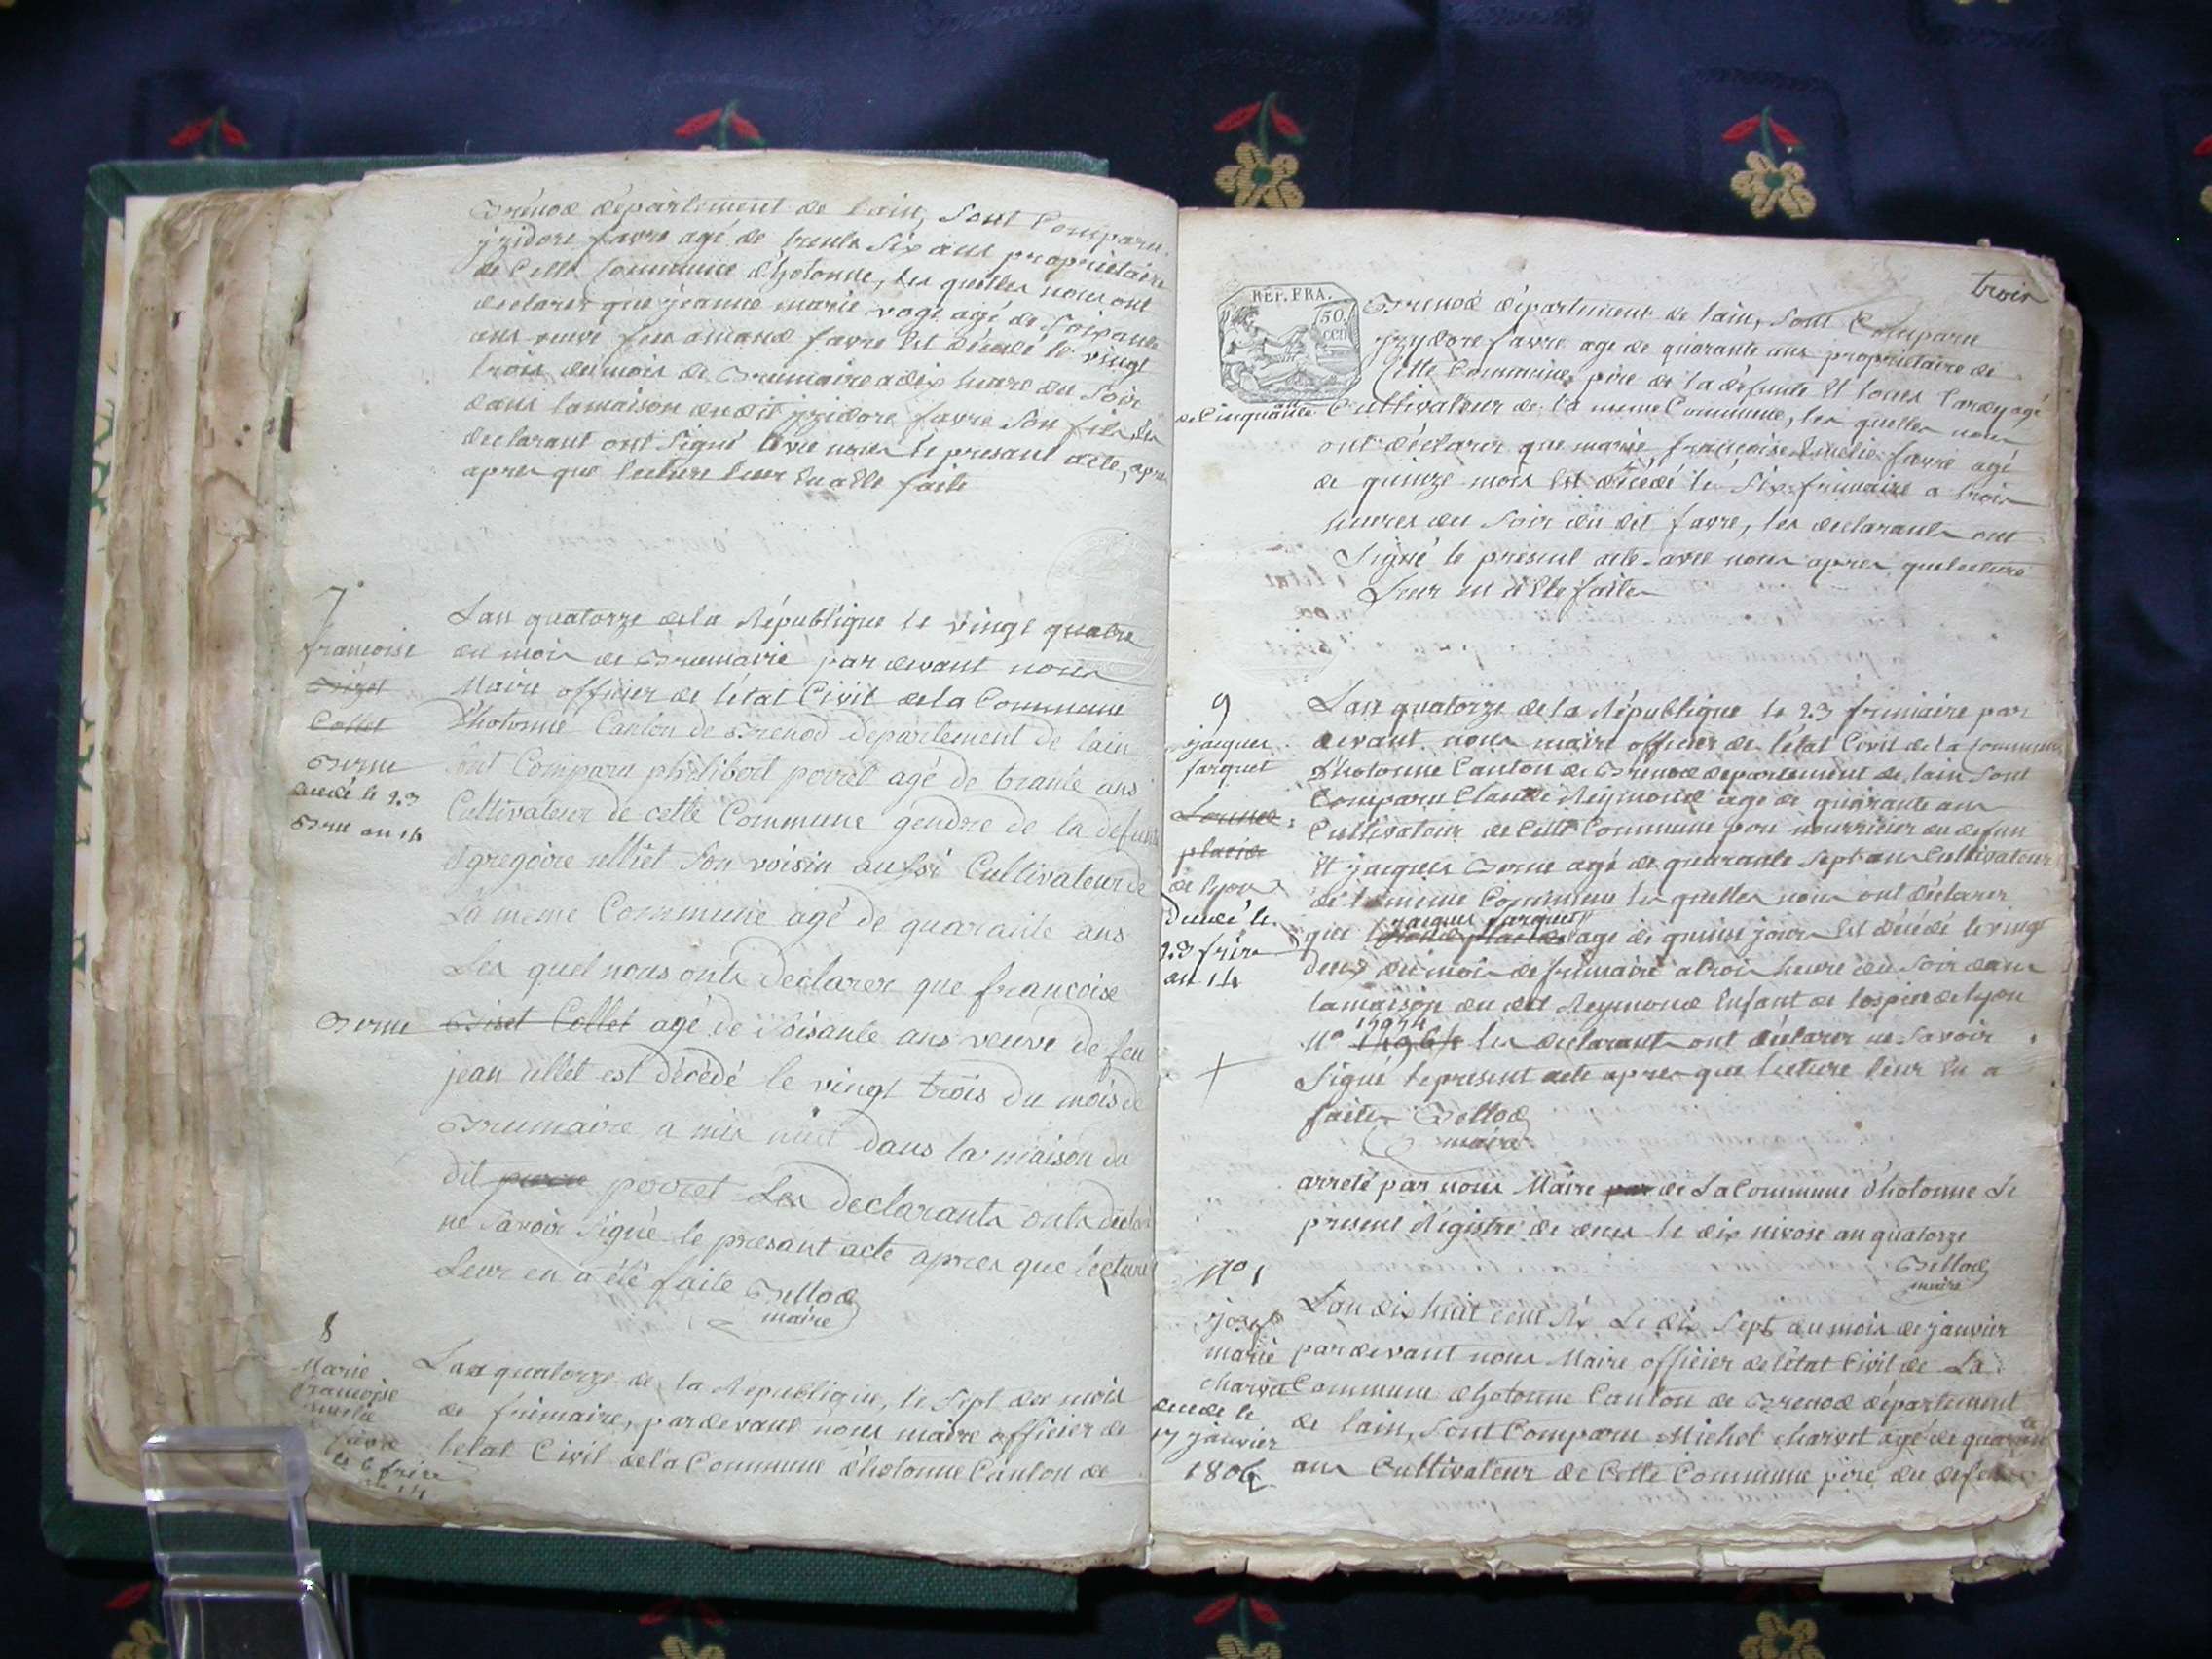 Brenod département de lain, sont Comparu
jzidore favre agé de trente six ans propriétaire
de Cette Commune d'hotonne, les quelles nous ont
declarer que jeanne marie voge agé de soixante
ans veuve feu amand favre Est décédé le vingt
trois du mois de Brumaire a dix heure du soir
dans lamaison dudit jzidore favre son fils les
declarant ont signé avec nous le presant acte, apres
apres que lecture leur En a Eté faite
7
francoise
Bizet
Collet
Borne
décédé le 23
Bru an 14
Lan quatorze dela République le vingt quatre
du mois de Brumaire par devant nous
Maire officier de létat Civil dela Commune
d'hotonne Canton de Brenod département de lain
sont Comparu philibert povret agé de trante ans
Cultivateur de cette Commune gendre de la defunte
et gregoire ulliet son voisin aussi Cultivateur de
La meme Commune agé de quarante ans
Les quel nous onts declarer que francoise
Borne Biset Collet agé de soisante ans veuve de feu
jean ulliet est décédé le vingt trois du mois de
Brumaire a mis nuit dans la maison du
dit povret Les declarants onts declare
ne savoir signé le presant acte apres que lecture
Leur en a été faite Bellod
maire
8
Marie
francoise
Emelie
favre
le 6 frire
an 14
Lan quatorze de la Republique, le sept du mois
de frimaire, pardevant nous maire officier de
letat Civil dela Commune d'hotonne Canton de
trois
REP. FRA.
50
cen
Brenod département de lain, sont Comparu
jzydore favre age de quarante ans propriétaire de
Cette Commune, père de la défunte Et
de Cinquante Cultivateur de la meme Commune, les quelles nous
ont déclarer que marie francoise Emelie favre agé
de quinze mois Est décédé le six frimaire a trois
heures du soir du dit favre, les declarants ont
signé le présent acte avec nous apres que lecture
Leur en a Eté faite
9
jacques
farquet
placide
de lyon
Décédé le
23 frire
an 14
Lan quatorze de la République le 23 frimaire par
devant nous maire officier de létat Civil de la Commune
d'hotonne Canton de Brenod département de lain sont
Comparu Claude Reymond agé de quarante ans
Cultivateur de Cette Commune pere nourricier du defun
Et jacques Borne agé de quarante sept ans Cultivateur
de la meme Commune les quelles nous ont déclarer
jacques farquet
que agé de quinse jours Est décédé le vingt
deux du mois de frimaire a trois heure du soir dans
lamaison du dit Reymond Enfant de lospice de lyon
No les declarants ont déclarer ne savoir
signé le present acte apres que lecture leur En a
faite Bellod
maire
arreté par nous Maire par de La Commune d'hotonne Le
présent Régistre de deces le dix nivose an quatorze
Bellod
maire
No 1
josef
marie
charvet
décédé le
17 janvier
1806
Lan dix huit cent six Le dix sept du mois de janvier
pardevant nous Maire officier de létat Civil de La
Commune d'hotonne Canton de Brenod département
de lain, sont Comparu Michel charvet agé de quarante
ans Cultivateur de Cette Commune père du defunt